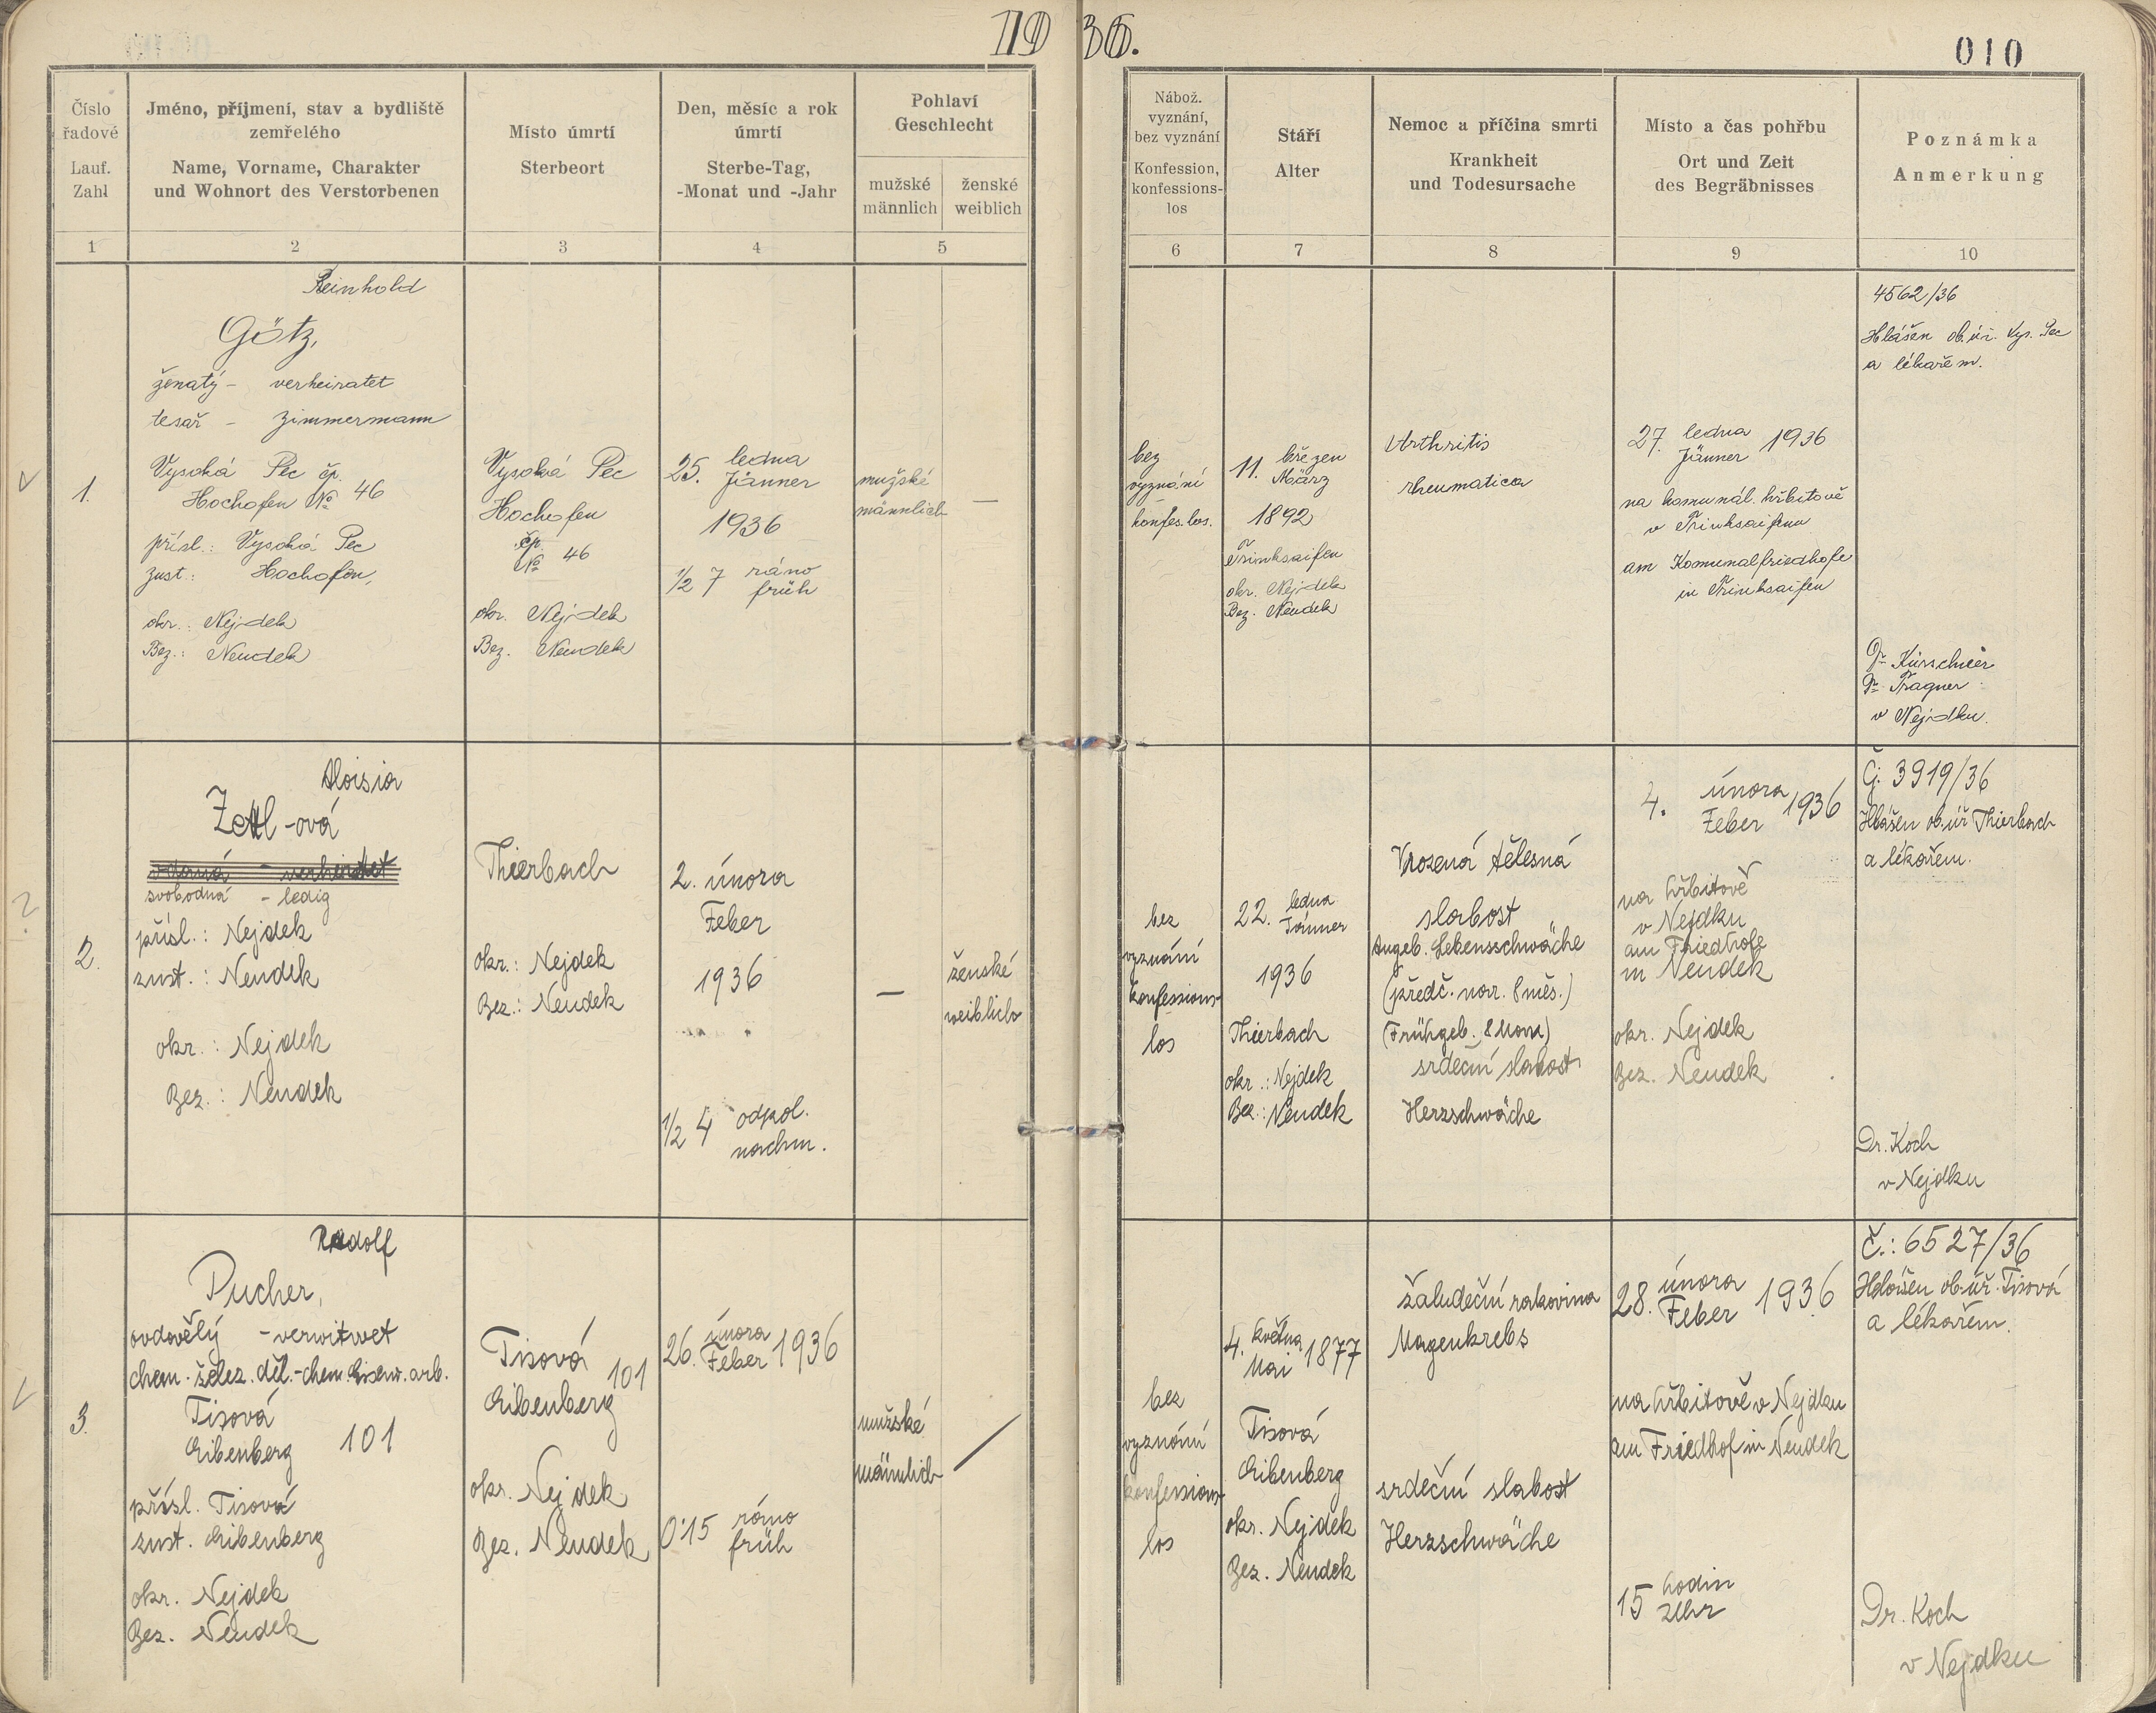 1936.
010
Číslo
řadové
Lauf.
Zahl
Jméno, příjmení, stav a bydliště
zemřelého
Name, Vorname, Charakter
und Wohnort des Verstorbenen
Místo úmrtí
Sterbeort
Den, měsíc a rok
úmrtí
Sterbe-Tag,
-Monat und -Jahr
Pohlaví
Geschlecht
mužské
männlich
ženské
weiblich
Nábož.
vyznání,
bez vyznání
Konfession,
konfessions-
los
Stáří
Alter
Nemoc a příčina smrti
Krankheit
und Todesursache
Místo a čas pohřbu
Ort und Zeit
des Begräbnisses
Poznámka
Anmerkung
1 2 3 4 5 6 7 8 9 10
1.
Reinhold
Götz,
ženatý - verheiratet
tesař - Zimmermann
Vysoká Pec čp.
Hochofen № 46
přísl.: Vysoká Pec
zust.: Hochofen,
okr.: Nejdek
Bez.: Neudek
Vysoká Pec
Hochofen
čp.
№ 46
okr. Nejdek
Bez. Neudek
25. ledna
Jänner
1936
1/2 7 ráno
früh
mužské
männlich
—
bez
vyznání
konfes.los.
11. březen
März
1892
Trinksaifen
okr. Nejdek
Bez. Neudek
Arthritis
rheumatica
27. ledna 1936
Jänner
na komunál. hřbitově
v Trinksaifenu
am Komunalfriedhofe
in Trinksaifen
4562/36
Hlášen ob.úř. Vys. Pec
a lékařem.
Dr Kürschner
Dr Tragner
v Nejdku.
2.
Aloisia
Zettl-ová
vdaná - verheiratet
svobodná - ledig
přísl.: Nejdek
zust.: Neudek
okr.: Nejdek
Bez.: Neudek
Thierbach
okr.: Nejdek
Bez.: Neudek
2. února
Feber
1936
1/2 4 odpol.
nachm.
—
ženské
weiblich
bez
vyznání
konfessions-
los
22. ledna
Jänner
1936
Thierbach
okr.: Nejdek
Bez.: Neudek
Vrozená tělesná
slabost
Angeb. Lebensschwäche
(předč. nar. 8 měs.)
(Frühgeb. 8 Mona)
srdeční slabost
Herzschwäche
4. února 1936
Feber
na hřbitově
v Nejdku
am Friedhofe
in Neudek
okr. Nejdek
Bez. Neudek
Č. 3919/36
Hlášen ob.úř Thierbach
a lékařem.
Dr. Koch
v Nejdku
3.
Rudolf
Pucher,
ovdovělý - verwitwet
chem. želez. děl. - chem. Eisenw. arb.
Tisová
Eibenberg 101
přísl. Tisová
zust. Eibenberg
okr. Nejdek
Bez. Neudek
Tisová
101
Eibenberg
okr. Nejdek
Bez. Neudek
26. února 1936
Feber
0·15 ráno
früh
mužské
männlich
bez
vyznání
konfessions-
los
4. května 1877
Mai
Tisová
Eibenberg
okr. Nejdek
Bez. Neudek
žaludeční rakovina
Magenkrebs
srdeční slabost
Herzschwäche
28. února 1936
Feber
na hřbitově v Nejdku
am Friedhof in Neudek
15 hodin
Uhr
Č.: 6527/36
Hlášen ob.úř. Tisová
a lékařem.
Dr. Koch
v Nejdku